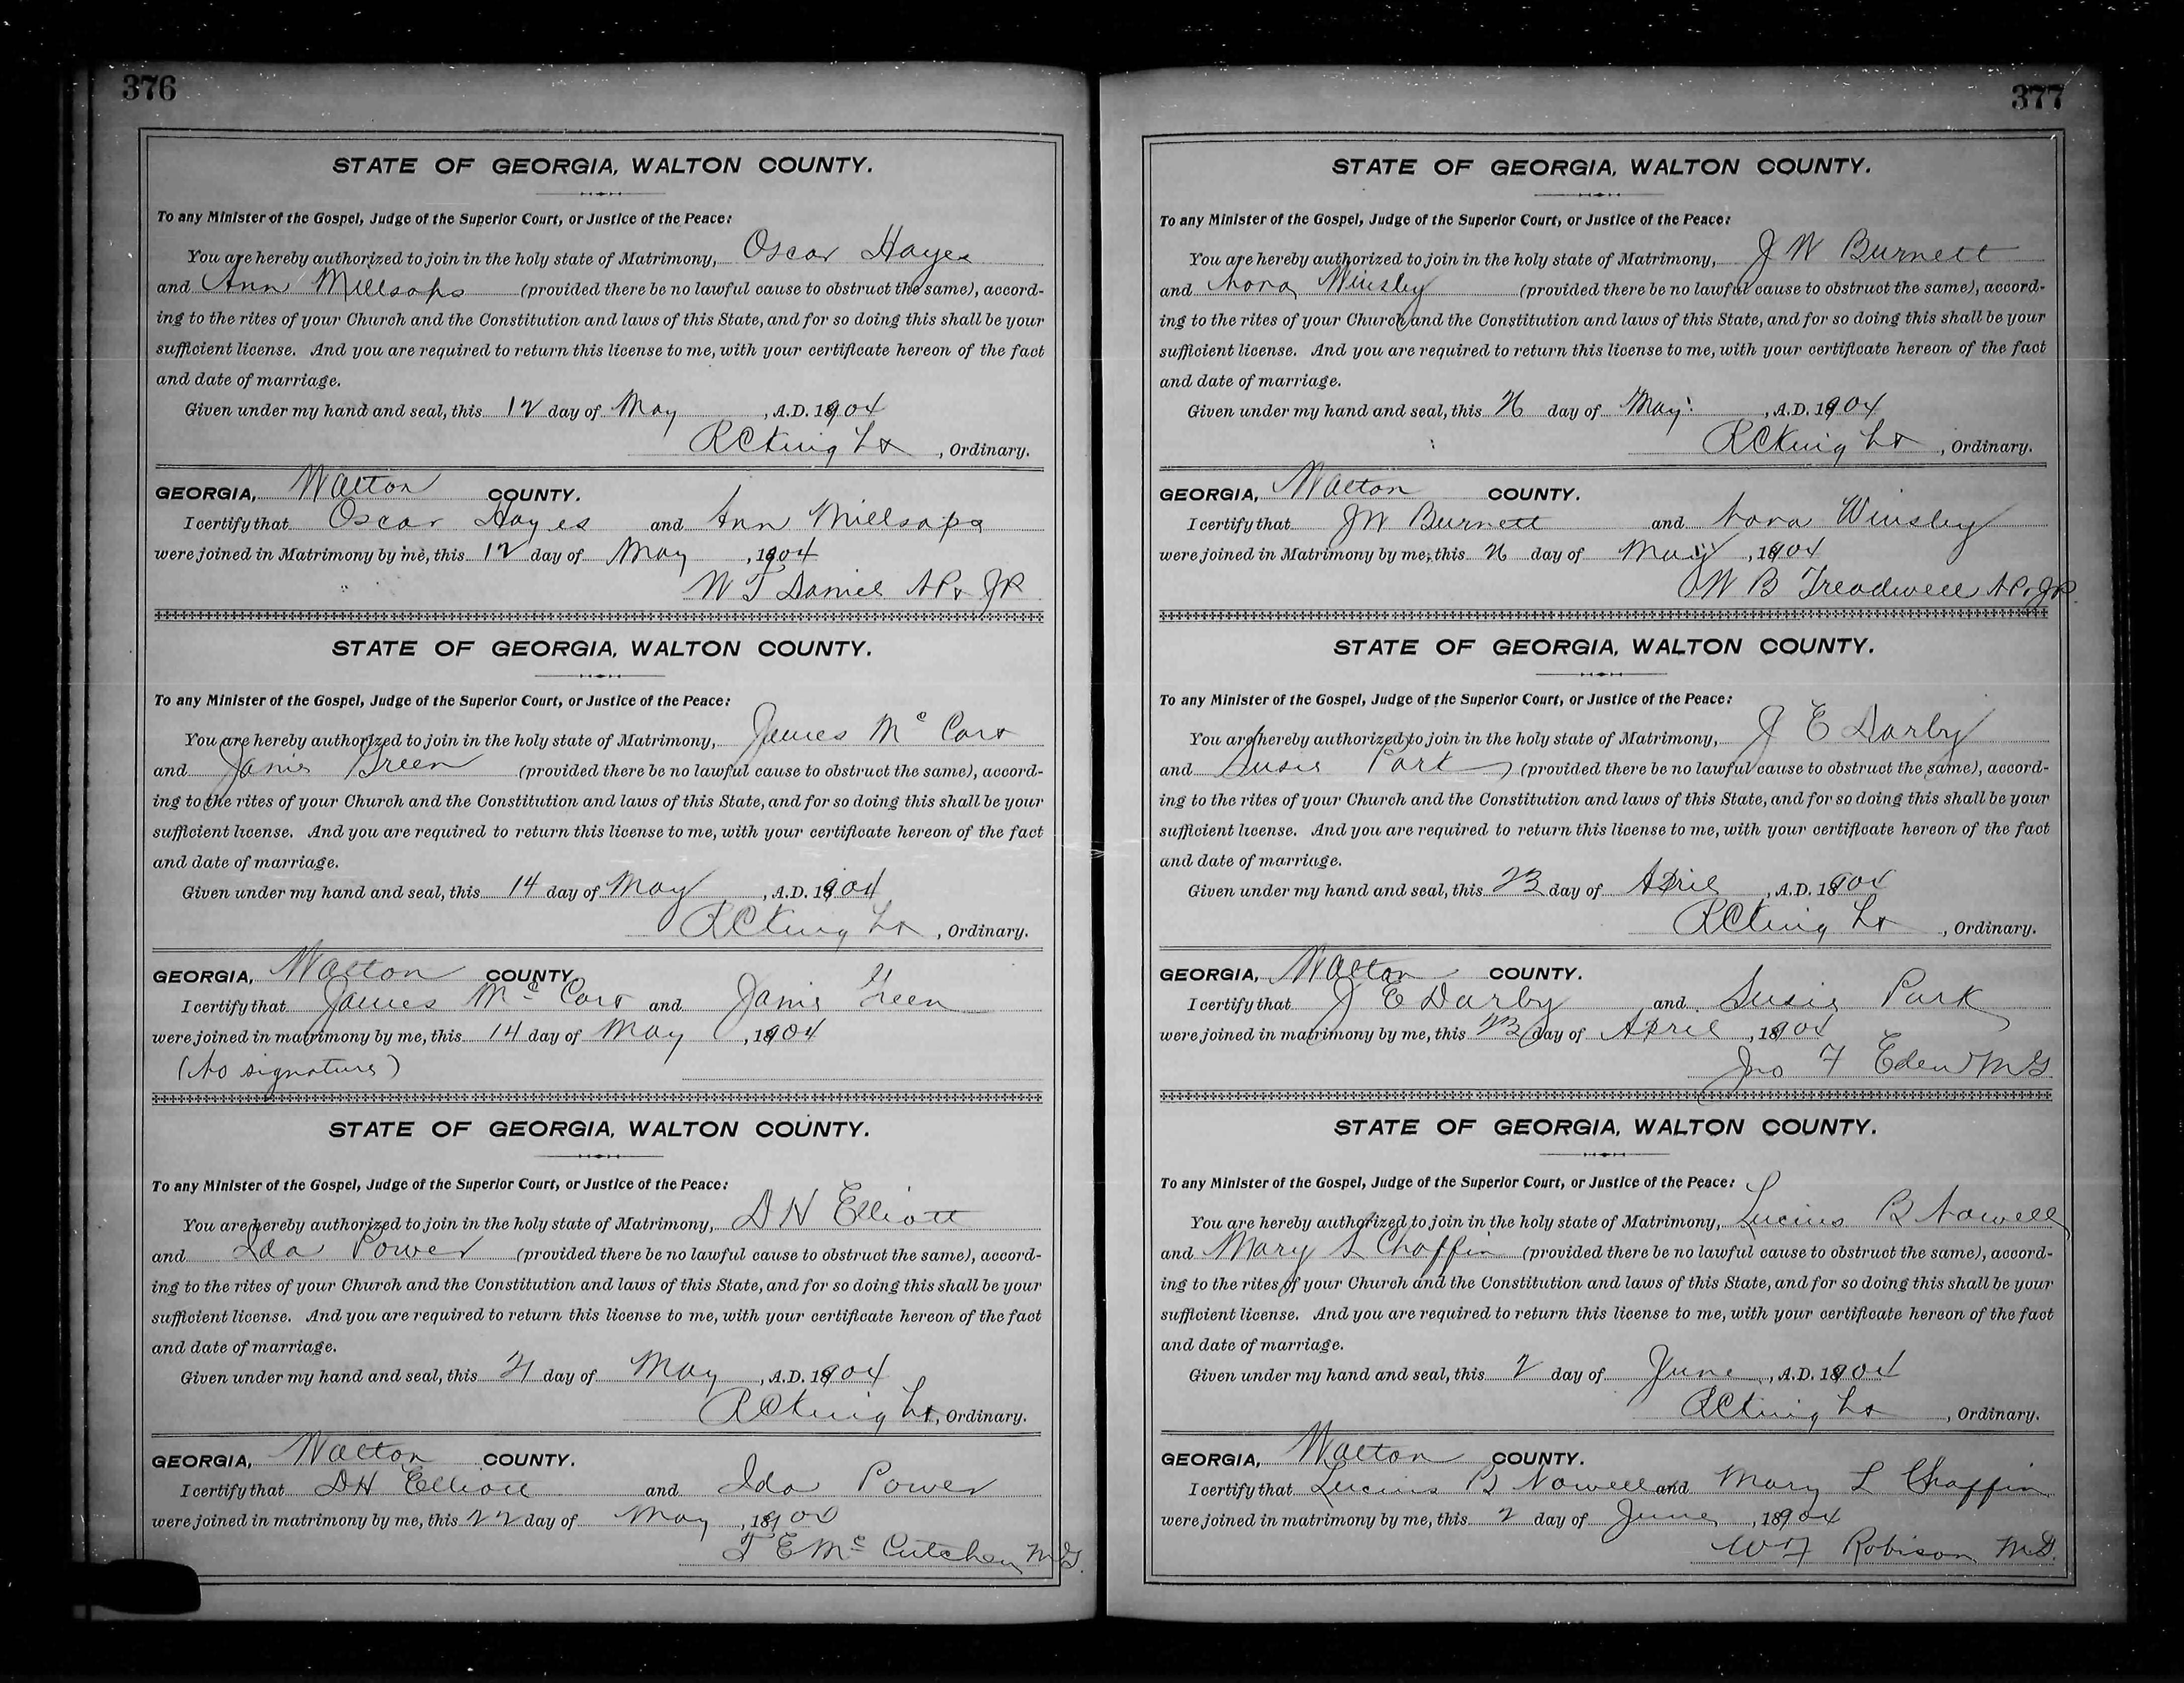 376
STATE OF GEORGIA, WALTON COUNTY.
To any Minister of the Gospel, Judge of the Superior Court, or Justice of the Peace:
You are hereby authorized to join in the holy state of Matrimony, Oscar Hayes
and Ann Millsaps (provided there be no lawful cause to obstruct the same), accord-
ing to the rites of your Church and the Constitution and laws of this State, and for so doing this shall be your
sufficient license. And you are required to return this license to me, with your certificate hereon of the fact
and date of marriage.
Given under my hand and seal, this 12 day of May, A.D. 1904
R C King, Ordinary.
GEORGIA, Walton COUNTY.
I certify that Oscar Hayes and Ann Millsaps
were joined in Matrimony by me, this 12 day of May, 1904
W T Daniel JP
STATE OF GEORGIA, WALTON COUNTY.
To any Minister of the Gospel, Judge of the Superior Court, or Justice of the Peace:
You are hereby authorized to join in the holy state of Matrimony, James Mc Cord
and Janie Green (provided there be no lawful cause to obstruct the same), accord-
ing to the rites of your Church and the Constitution and laws of this State, and for so doing this shall be your
sufficient license. And you are required to return this license to me, with your certificate hereon of the fact
and date of marriage.
Given under my hand and seal, this 14 day of May, A.D. 1904
R C King, Ordinary.
GEORGIA, Walton COUNTY.
I certify that James Mc Cord and Janie Green
were joined in matrimony by me, this 14 day of May, 1904
(No signature)
STATE OF GEORGIA, WALTON COUNTY.
To any Minister of the Gospel, Judge of the Superior Court, or Justice of the Peace:
You are hereby authorized to join in the holy state of Matrimony, D H Elliott
and Ida Power (provided there be no lawful cause to obstruct the same), accord-
ing to the rites of your Church and the Constitution and laws of this State, and for so doing this shall be your
sufficient license. And you are required to return this license to me, with your certificate hereon of the fact
and date of marriage.
Given under my hand and seal, this 21 day of May, A.D. 1904
R C King, Ordinary.
GEORGIA, Walton COUNTY.
I certify that D H Elliott and Ida Power
were joined in matrimony by me, this 22 day of May, 1900
T E Mc Cutchen M G.
377
STATE OF GEORGIA, WALTON COUNTY.
To any Minister of the Gospel, Judge of the Superior Court, or Justice of the Peace:
You are hereby authorized to join in the holy state of Matrimony, J W Burnett
and Nora Winsley (provided there be no lawful cause to obstruct the same), accord-
ing to the rites of your Church and the Constitution and laws of this State, and for so doing this shall be your
sufficient license. And you are required to return this license to me, with your certificate hereon of the fact
and date of marriage.
Given under my hand and seal, this 26 day of May, A.D. 1904
R C King, Ordinary.
GEORGIA, Walton COUNTY.
I certify that J W Burnett and Nora Winsley
were joined in Matrimony by me, this 26 day of May, 1904
W B Treadwell JP.
STATE OF GEORGIA, WALTON COUNTY.
To any Minister of the Gospel, Judge of the Superior Court, or Justice of the Peace:
You are hereby authorized to join in the holy state of Matrimony, J E Darby
and Susie Park (provided there be no lawful cause to obstruct the same), accord-
ing to the rites of your Church and the Constitution and laws of this State, and for so doing this shall be your
sufficient license. And you are required to return this license to me, with your certificate hereon of the fact
and date of marriage.
Given under my hand and seal, this 23 day of April, A.D. 1904
R C King, Ordinary.
GEORGIA, Walton COUNTY.
I certify that J E Darby and Susie Park
were joined in matrimony by me, this 23 day of April, 1904
Jno F Eden M G
STATE OF GEORGIA, WALTON COUNTY.
To any Minister of the Gospel, Judge of the Superior Court, or Justice of the Peace:
You are hereby authorized to join in the holy state of Matrimony, Lucius B Nowell
and Mary L Chaffin (provided there be no lawful cause to obstruct the same), accord-
ing to the rites of your Church and the Constitution and laws of this State, and for so doing this shall be your
sufficient license. And you are required to return this license to me, with your certificate hereon of the fact
and date of marriage.
Given under my hand and seal, this 2 day of June, A.D. 1904
R C King, Ordinary.
GEORGIA, Walton COUNTY.
I certify that Lucius B Nowell and Mary L Chaffin
were joined in matrimony by me, this 2 day of June, 1904
W F Robison M G.